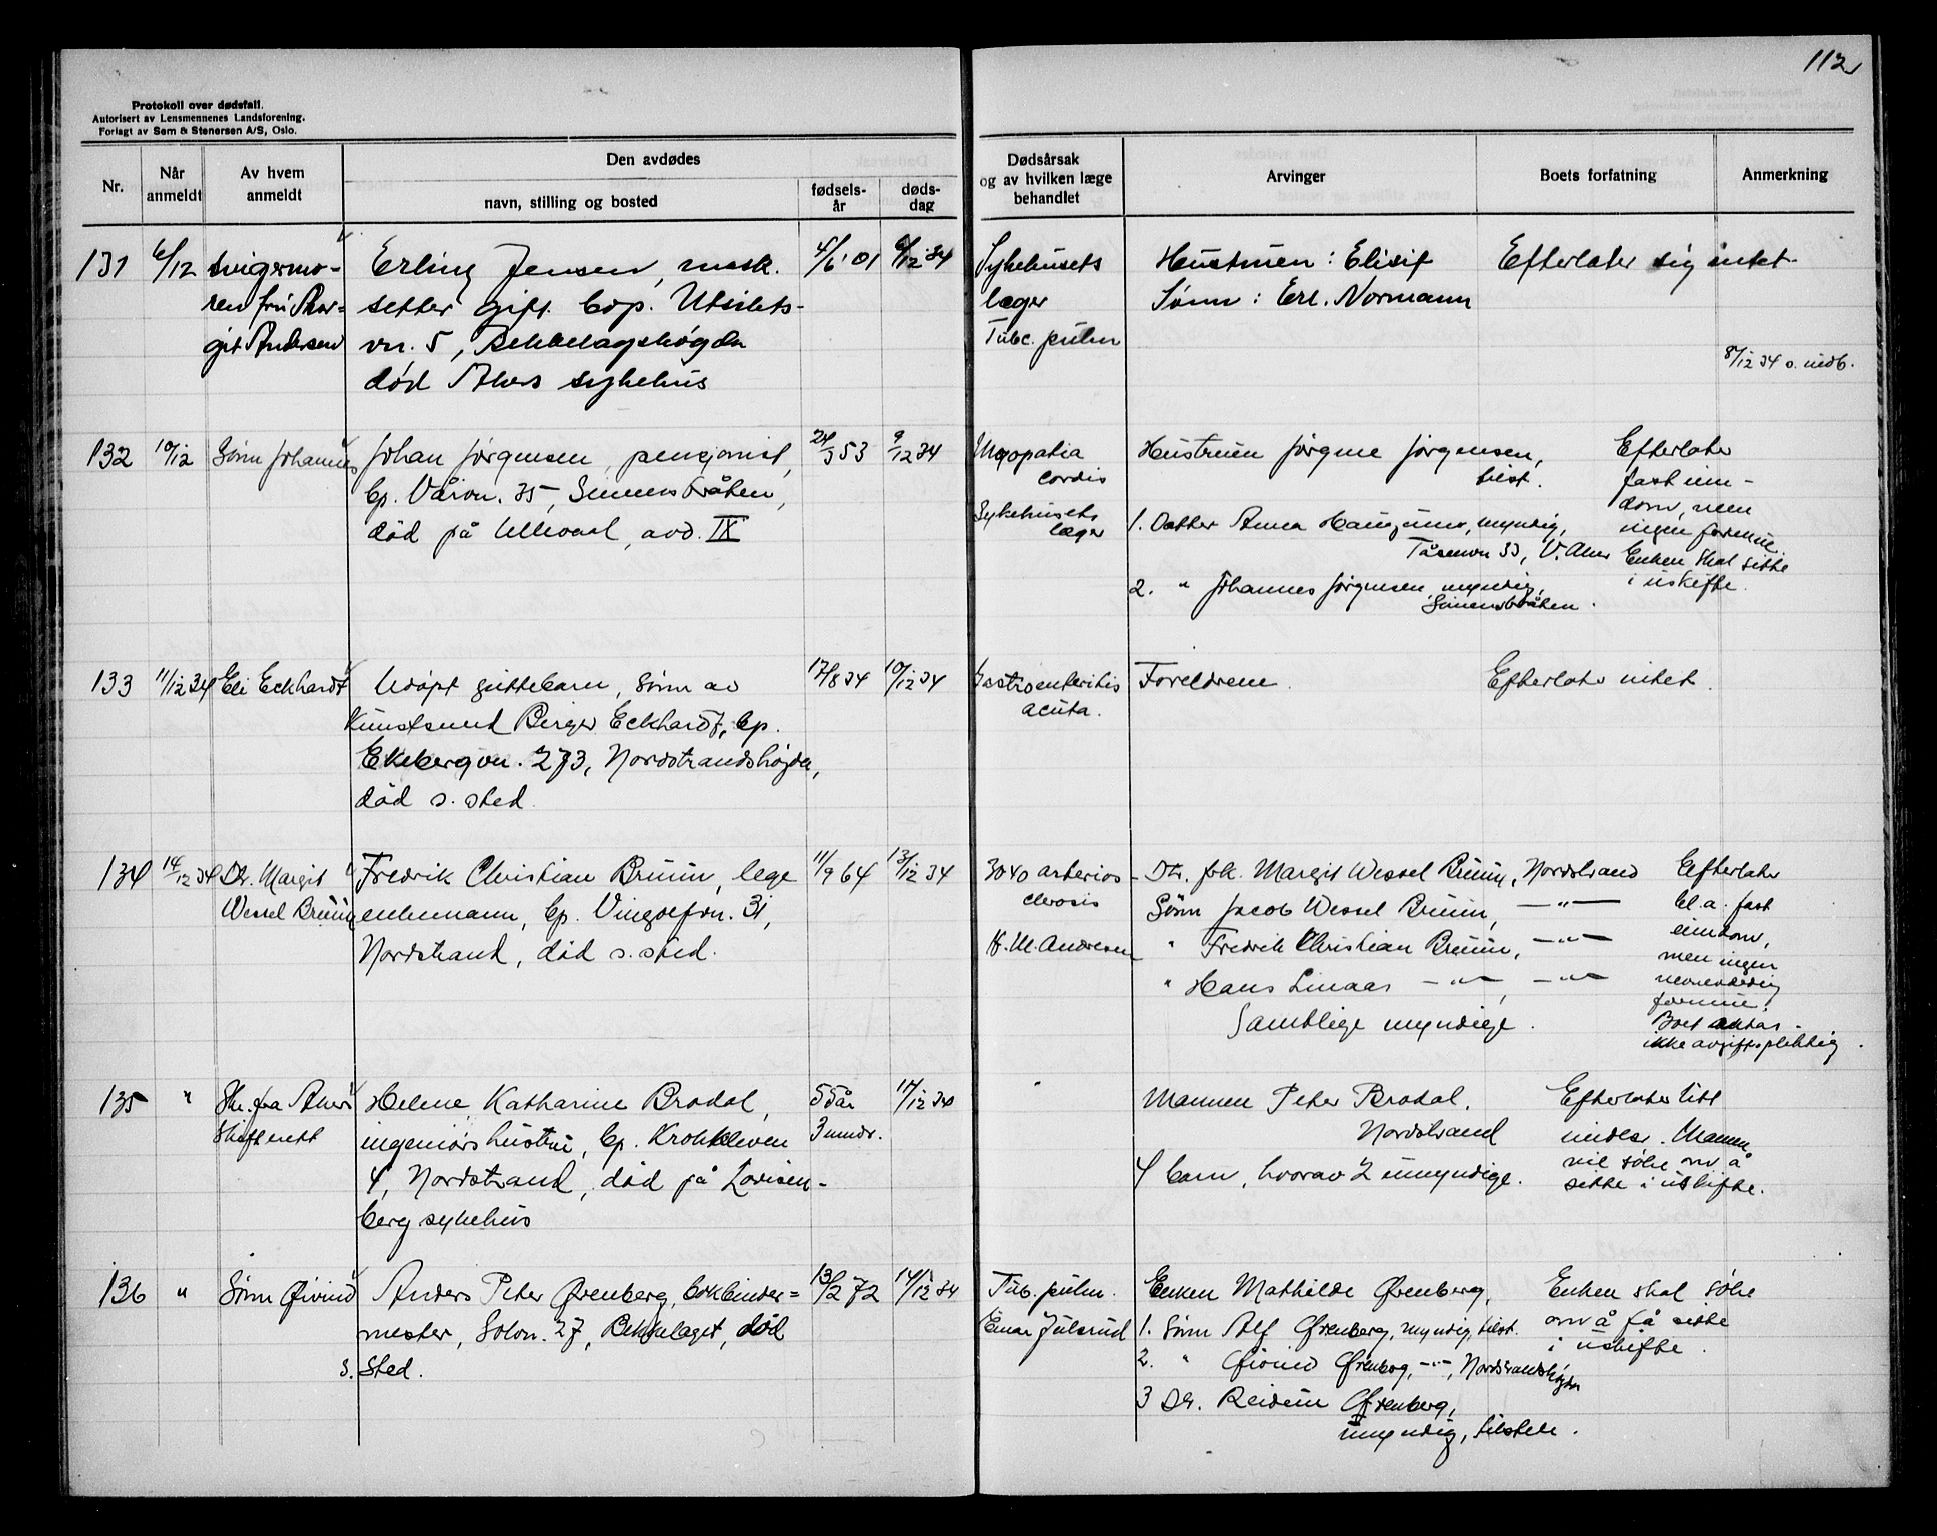 112
Protokoll over dødsfall.
Autorisert av Lensmennenes Landsforening.
Forlagt av Sem & Stenersen A/S, Oslo.
Nr.
Når anmeldt
Av hvem anmeldt
Den avdødes
navn, stilling og bosted
fødsels-år
døds-dag
Dødsårsak og av hvilken læge behandlet
Arvinger
Boets forfatning
Anmerkning
131
6/12
svigermo-
ren fru Mar-
git Andersen
Erling Jensen, mask.
setter gift. bop. Utsikts-
vn. 5, Bekkelagshøgda
død Akers sykehus
4/6 01
6/12 34
Sykehusets
læger
Tubc. pulm
Hustruen: Elisif
Sønn: Erl. Normann
Efterlater sig intet
8/12 34 s. indb.
132
10/12
Sønn Johannes
Johan Jørgensen, pensjonist,
bp. Vårvn. 35, Simensbråten,
død på Ullevaal, avd. IX
24/3 53
9/12 34
Myopatia
cordis
Sykehusets
læger
Hustruen Jørgine Jørgensen,
tilst.
1. Datter Anna Haugum, myndig,
Tåsenvn 33, V. Aker
2. " Johannes Jørgensen, myndig,
Simensbråten.
Efterlater
fast eien-
dom, men
ingen formue.
Enken skal sitte
i uskifte.
133
11/12 34
Eli Eckhardt
Udøpt guttebarn, sønn av
Kunstsmed Birger Eckhardt, bp.
Ekebergvn. 273, Nordstrandshøgda,
død s. sted.
17/8 34
10/12 34
Gastroenteritis
acuta.
Foreldrene.
Efterlater intet.
134
14/12 34
Dtr. Margit
Wessel Bruun
Fredrik Christian Bruun, lege
enkemann, bp. Vingolfvn. 31,
Nordstrand, død s. sted.
11/9 64
13/12 34
3040 arterios-
clerosis
K. M. Andresen
Dtr. frk. Margit Wessel Bruun, Nordstrand
Sønn Jacob Wessel Bruun, — " —
" Fredrik Christian Bruun, — " —
" Hans Linaas — " —, — " —
Samtlige myndige.
Efterlater
bl.a. fast
eiendom,
men ingen
nevneverdig
formue.
Boet antas
ikke avgiftspliktig.
135
"
Skr. fra Aker
Skifterett
Helene Katharine Brodal,
ingeniørs hustru, bp. Krokkleven
4, Nordstrand, død på Lovisen-
berg sykehus
55 år
3 mndr.
11/12 34
Mannen Peter Brodal.
Nordstrand
4 barn, hvorav 2 umyndige.
Efterlater litt
midler. Mannen
vil søke om å
sitte i uskifte.
136
"
Sønn Øivind
Anders Peter Ørenberg, bokbinder=
mester, Solvn. 27, Bekkelaget, død
s. sted.
13/2 72
14/12 34
Tub. pulm.
Einar Julsrud
Enken Mathilde Ørenberg,
1. Sønn Alf Ørenberg, myndig, tilst.
2. " Øivind Ørenberg, — " —, Nordstrandshøgda
3 Dtr. Reidun Ørenberg,
umyndig, tilstede.
Enken skal søke
om å få sitte
i uskifte.